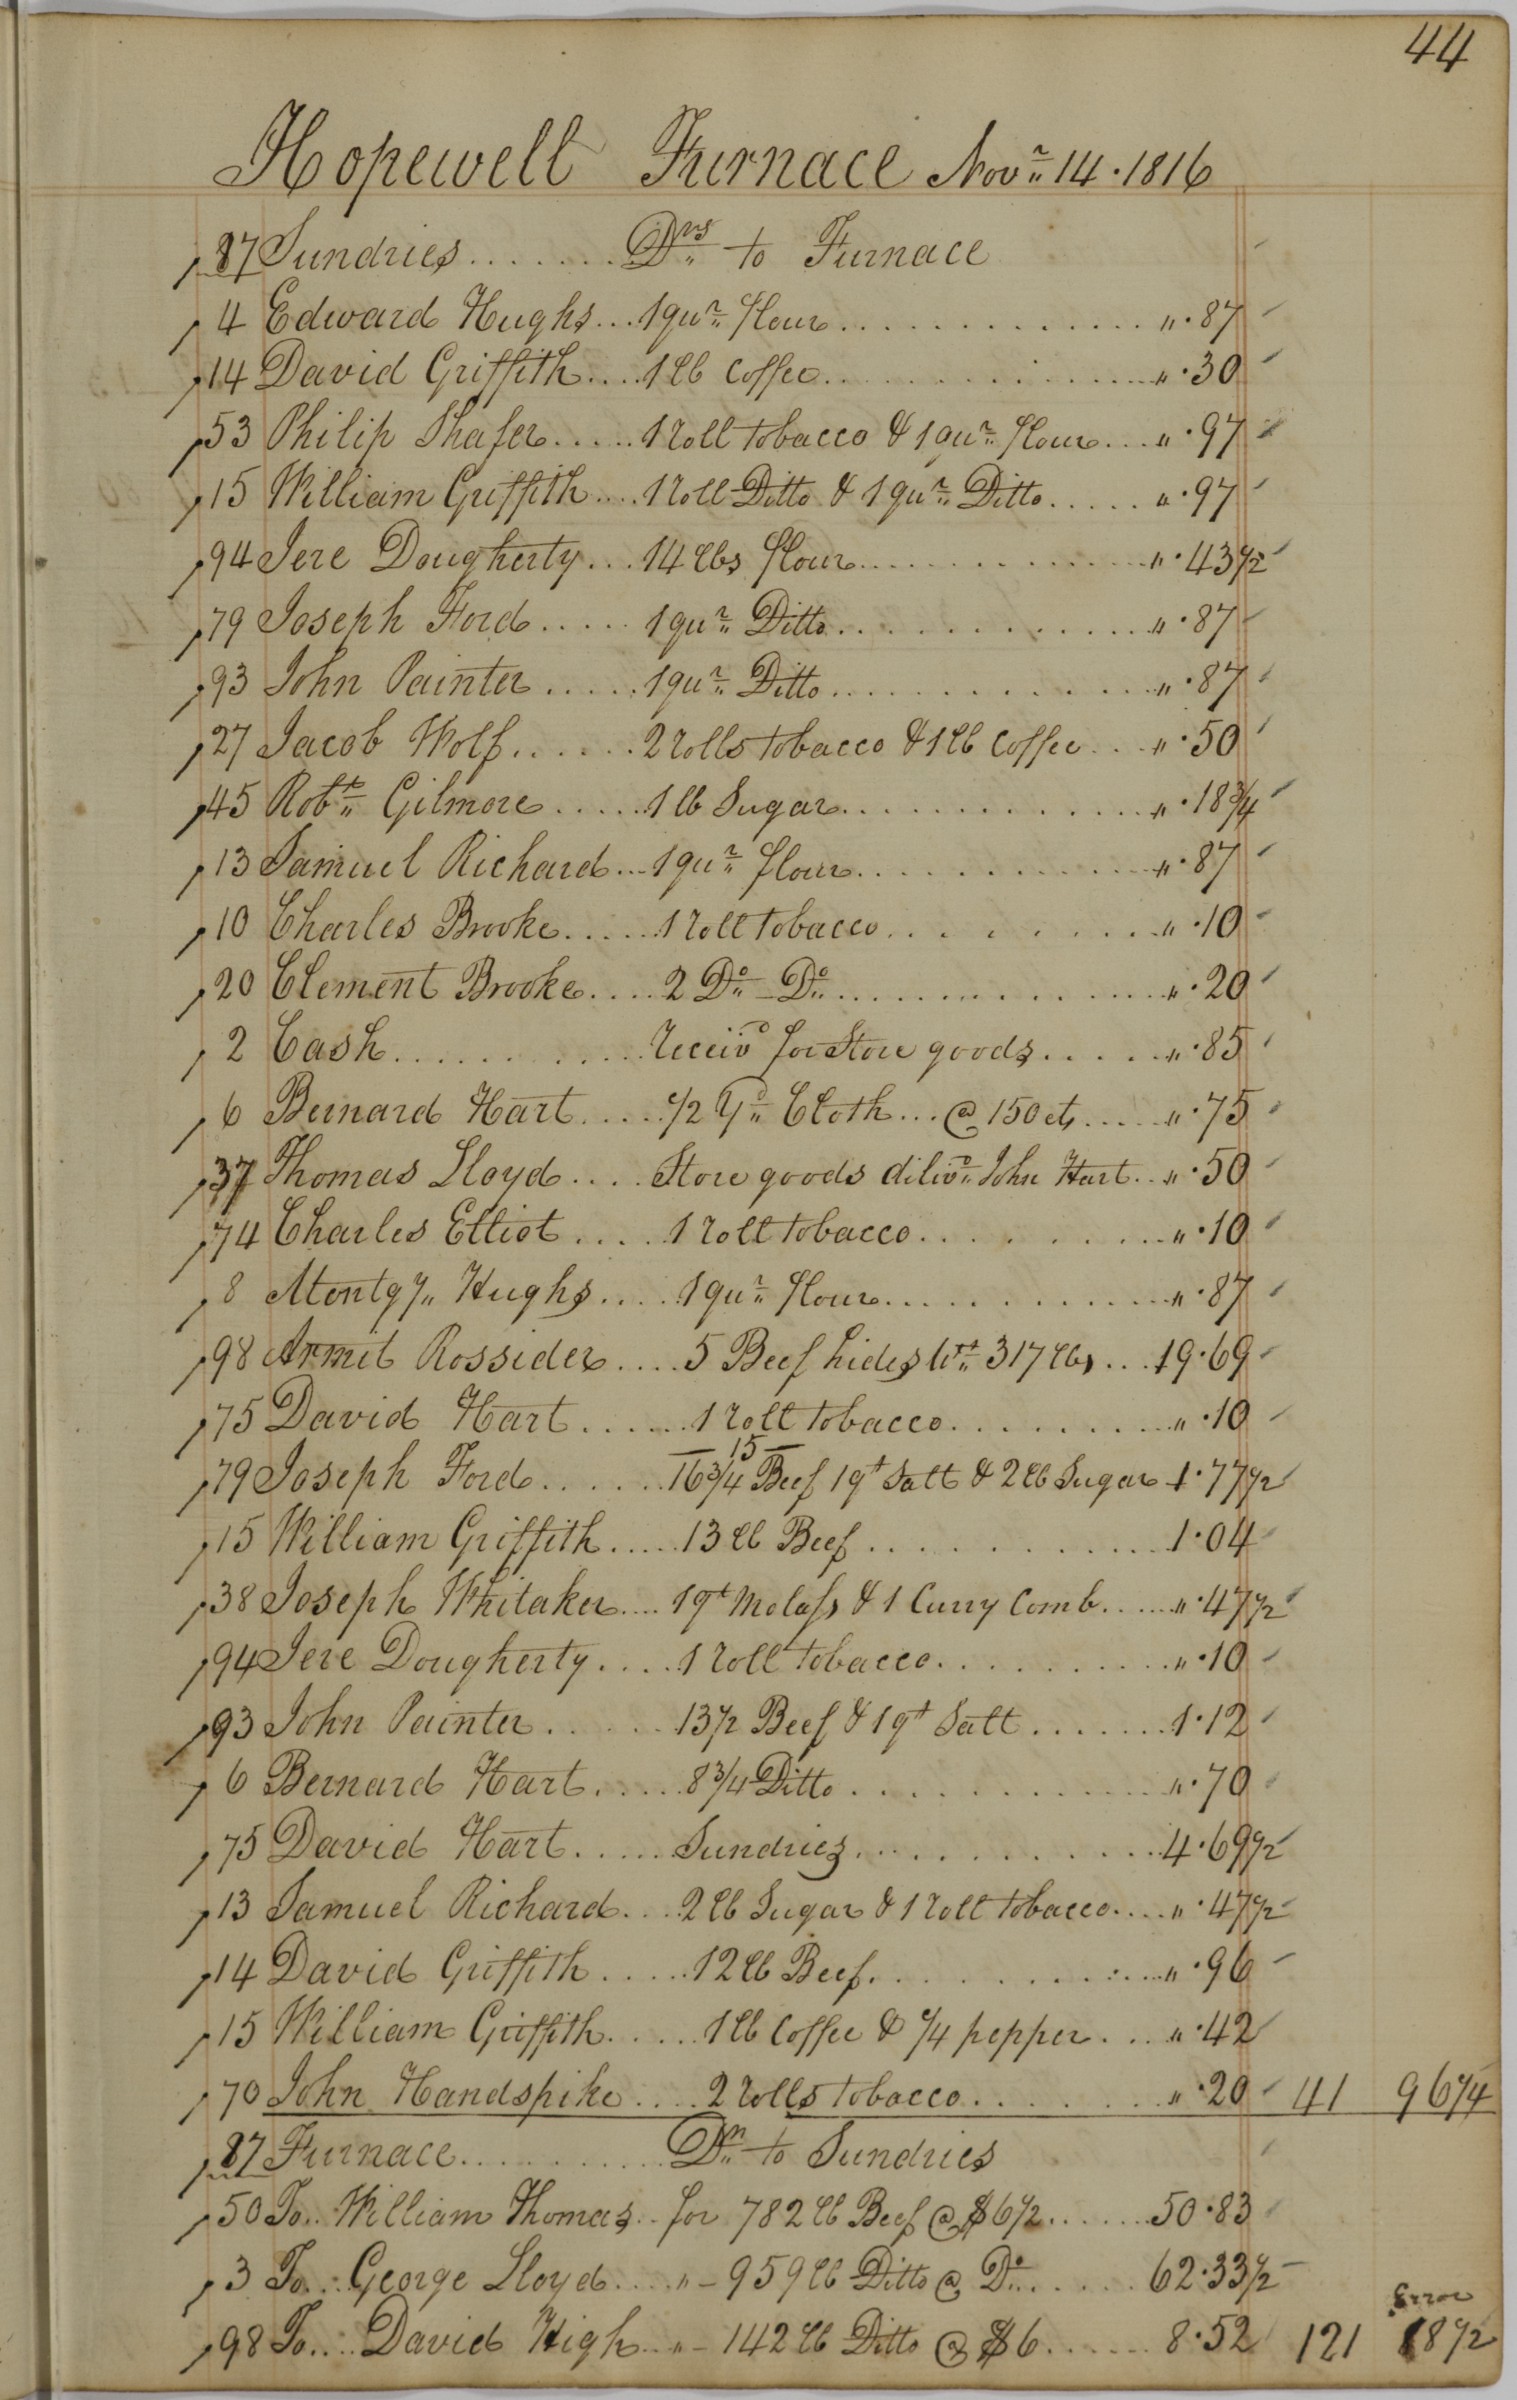 44
Hopewell Furnace Novr 14 . 1816
87 Sundries ....... Drs to Furnace
4 Edward Hughs ... 1 qur flour ............. " . 87
14 David Griffith .... 1 lb Coffee ............. " . 30
53 Philip Shafer ..... 1 roll tobacco & 1 qur flour ... " . 97
15 William Griffith .... 1 roll Ditto & 1 qur Ditto ..... " . 97
94 Jere Dougherty ... 14 lbs flour ............. " . 43 1/2
79 Joseph Ford ..... 1 qur Ditto ............. " . 87
93 John Painter ..... 1 qur Ditto ............. " . 87
27 Jacob Wolf ...... 2 rolls tobacco & 1 lb Coffee ... " . 50
45 Robt Gilmore ..... 1 lb Sugar ............. " . 18 3/4
13 Samuel Richard ... 1 qur flour ............. " . 87
10 Charles Brooke ..... 1 roll tobacco .......... " . 10
20 Clement Brooke .... 2 Do - Do ............. " . 20
2 Cash ........... receivd for Store goods ..... " . 85
6 Bernard Hart ..... 1/2 Yd Cloth ... @ 150 cts ..... " . 75
37 Thomas Lloyd .... Store goods delivd John Hart .. " . 50
74 Charles Elliot .... 1 roll tobacco .......... " . 10
8 Montgy Hughs .... 1 qur flour ............. " . 87
98 Armit Rossider .... 5 Beef hides Wt 317 lbs ... 19 . 69
75 David Hart ...... 1 roll tobacco .......... " . 10
— 15 —
79 Joseph Ford ...... 16 3/4 Beef 1 qt Salt & 2 lb Sugar 1 . 77 1/2
15 William Griffith ..... 13 lb Beef ............. 1 . 04
38 Joseph Whitaker .... 1 qt Molass & 1 Curry Comb ..... " . 47 1/2
94 Jere Dougherty .... 1 roll tobacco .......... " . 10
93 John Painter ...... 13 1/2 Beef & 1 qt Salt ....... 1 . 12
6 Bernard Hart ..... 8 3/4 Ditto ............. " . 70
75 David Hart ..... Sundries ............. 4 . 69 1/2
13 Samuel Richard .... 2 lb Sugar & 1 roll tobacco .... " . 47 1/2
14 David Griffith ..... 12 lb Beef ............. " . 96
15 William Griffith ..... 1 lb Coffee & 1/4 pepper ... " . 42
70 John Handspike .... 2 rolls tobacco ........ " . 20 41 96 1/4
87 Furnace ........... Dr to Sundries
50 To .. William Thomas .. for 782 lb Beef @ $6 1/2 ...... 50 . 83
3 To .. George Lloyd .... " - 959 lb Ditto @ Do ...... 62 . 33 1/2
Error
98 To ... David High ... " - 142 lb Ditto @ $6 ...... 8 . 52 121 68 1/2